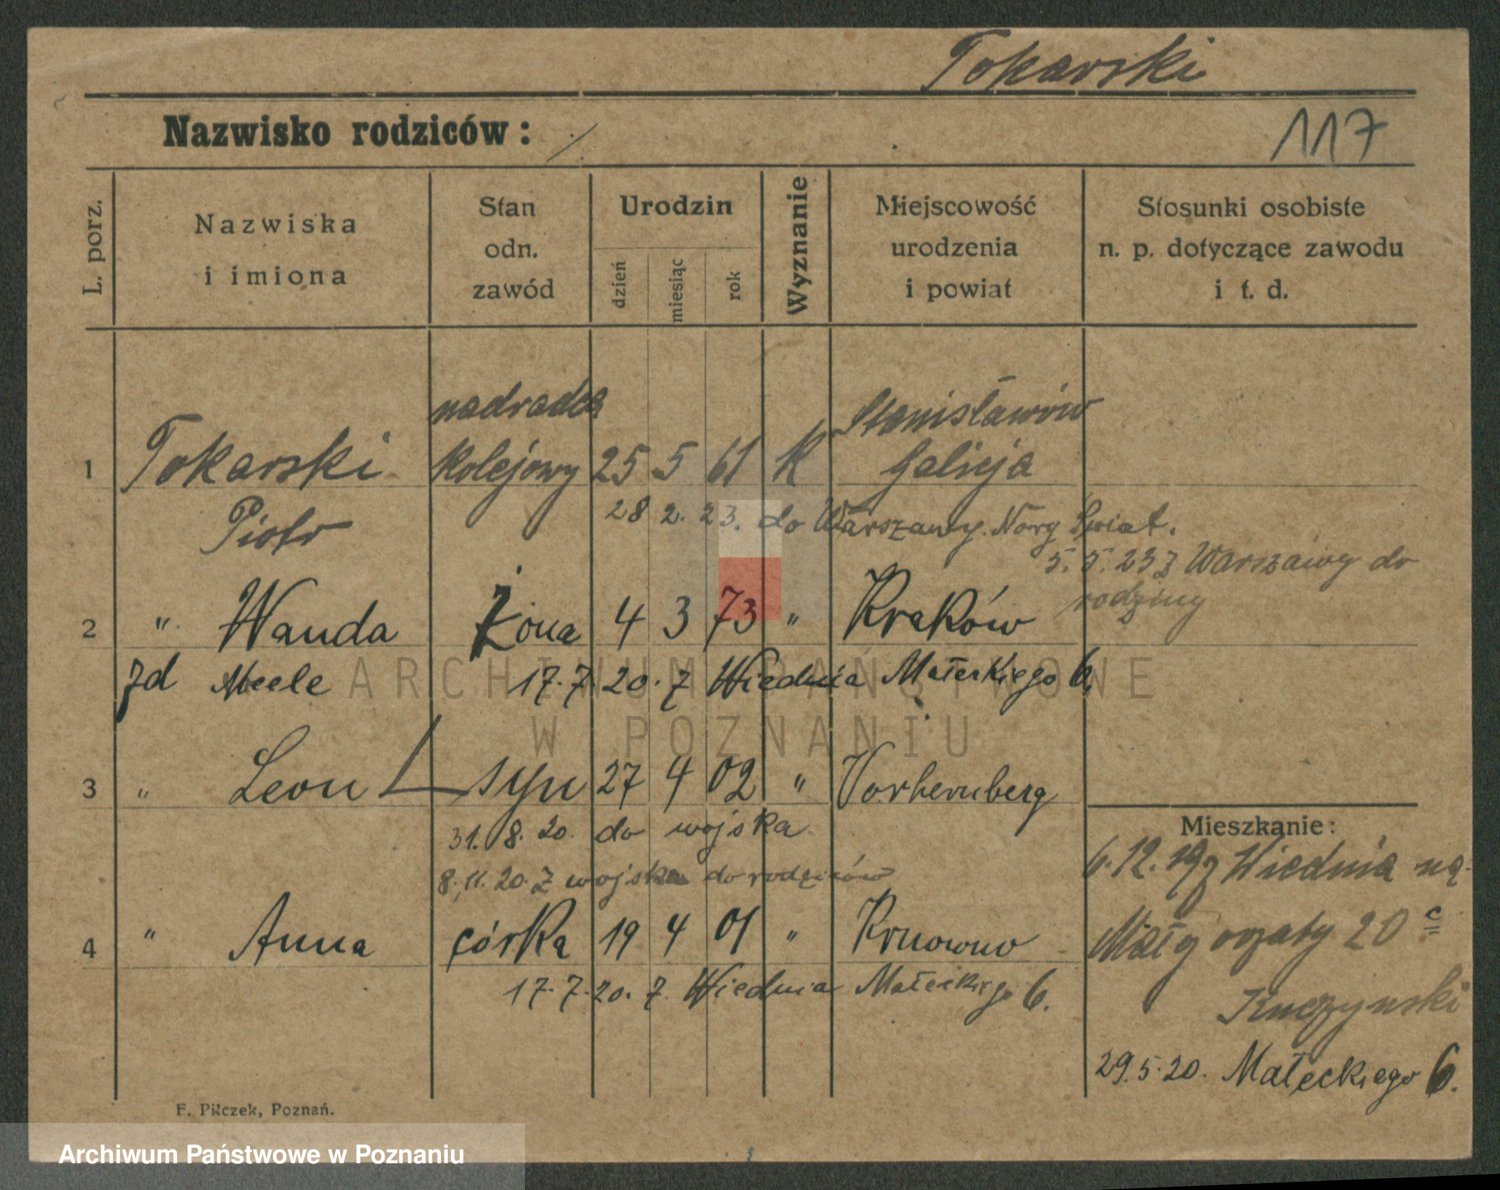 Tokarski
Nazwisko rodziców: /
117
L. porz.
Nazwiska i imiona
Stan odn. zawód
Urodzin
dzień
miesiąc
rok
Wyznanie
Miejscowość urodzenia i powiat
Stosunki osobiste n. p. dotyczące zawodu i t. d.
1 Tokarski Piotr nadradca kolejowy 25 5 61 K Stanisławów Galicja
28 2. 23. do Warszawy. Nowy Świat.
5. 5. 23 z Warszawy do rodziny
2 " Wanda żona 4 3 73 " Kraków
zd Meele 17. 7. 20. z Wiednia Małeckiego 6.
3 " Leon syn 27 4 02 "
31. 8. 20. do wojska
8. 11. 20. z wojska do rodziców
4 " Anna córka 19 4 01 "
17. 7. 20. z Wiednia Małeckiego 6.
Mieszkanie:
6. 12. 19 z Wiednia na
20
29. 5. 20. Małeckiego 6.
F. Pilczek, Poznań.
ARCHIWUM PAŃSTWOWE
W POZNANIU
Archiwum Państwowe w Poznaniu